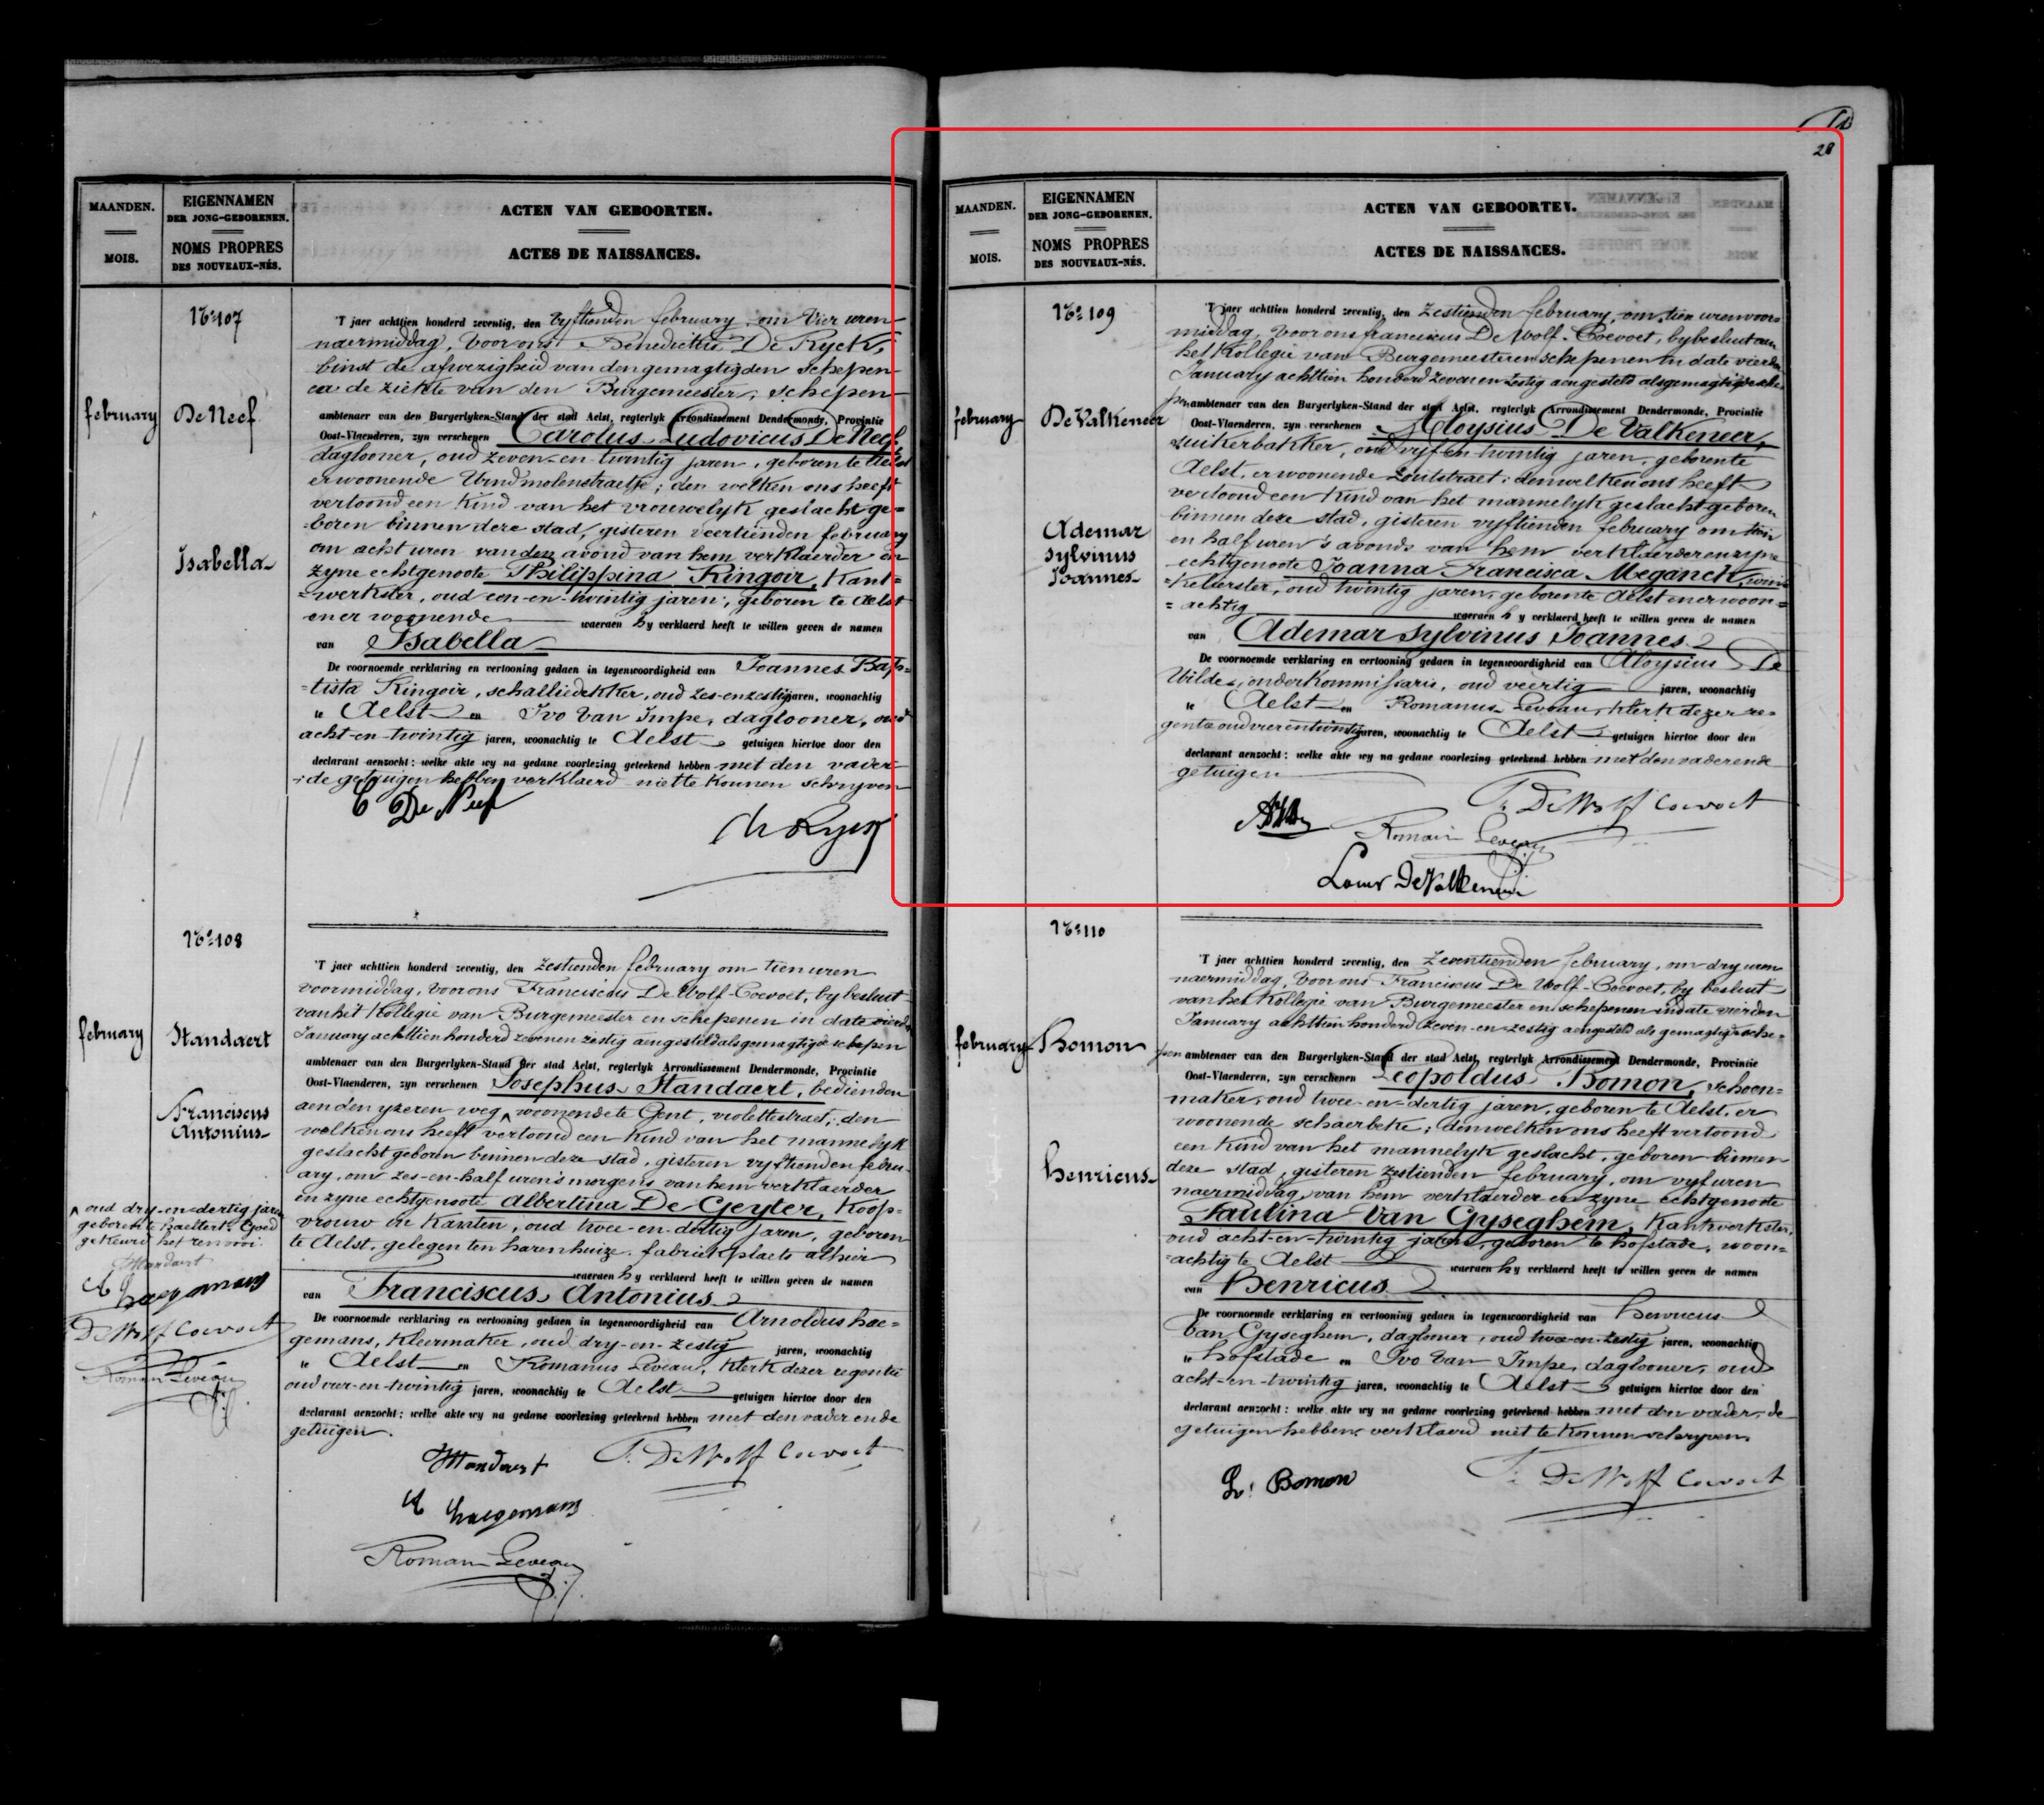 MAANDEN.
MOIS.
EIGENNAMEN
DER JONG-GEBORENEN.
NOMS PROPRES
DES NOUVEAUX-NÉS.
ACTEN VAN GEBOORTEN.
ACTES DE NAISSANCES.
No 107
february
De Neef
Isabella
'T jaer achttien honderd zeventig, den vyftienden february, om vier uren
naermiddag, voor ons Benedictus De Ryck,
binst de afwezigheid van den gemagtigden schepen
en de ziekte van den Burgemeester, schepen
ambtenaer van den Burgerlyken-Stand der stad Aelst, regterlyk Arrondissement Dendermonde, Provintie
Oost-Vlaenderen, zyn verschenen Carolus Ludovicus De Neef,
daglooner, oud zeven-en-twintig jaren, geboren te Aelst
er woonende molenstraetje; den welken ons heeft
vertoond een kind van het vrouwelyk geslacht ge=
boren binnen deze stad, gisteren veertienden february
om acht uren van den avond van hem verklaerder en
zyne echtgenoote Philippina Ringoir, Kant=
=werkster, oud een-en-twintig jaren, geboren te Aelst
en er woonende waeraen hy verklaerd heeft te willen geven de namen
van Isabella
De voornoemde verklaring en vertooning gedaen in tegenwoordigheid van Joannes Bap=
=tista Ringoir, schaliedekker, oud zes-en zestig jaren, woonachtig
te Aelst en Ivo Van Impe, daglooner, oud
acht-en-twintig jaren, woonachtig te Aelst getuigen hiertoe door den
declarant aenzocht: welke akte wy na gedane voorlezing geteekend hebben met den vader
; de getuigen hebben verklaerd niet te konnen schryven
C De Neef
De Ryck
No 108
february
Standaert
Franciscus
Antonius
'T jaer achttien honderd zeventig, den zestienden february om tien uren
voormiddag, voor ons Franciscus De Wolf-Coevoet, by besluit
van het Kollegie van Burgemeester en schepenen in date vierden
January achttien honderd zeven en zestig aengesteld als gemagtigde schepen
ambtenaer van den Burgerlyken-Stand der stad Aelst, regterlyk Arrondissement Dendermonde, Provintie
Oost-Vlaenderen, zyn verschenen Josephus Standaert, bedienden
aen den yzeren weg, woonende te Gent, violettestraet; den
welken ons heeft vertoond een kind van het mannelyk
geslacht geboren binnen deze stad, gisteren vyftienden febru-
ary, om zes-en-half uren 's morgens van hem verklaerder
en zyne echtgenoote Albertina De Geyter, Koop=
vrouw in Kanten, oud twee-en-dertig jaren, geboren
te Aelst, gelegen ten harenhuize fabriekplaets alhier
waeraen hy verklaerd heeft te willen geven de namen
van Franciscus Antonius
De voornoemde verklaring en vertooning gedaen in tegenwoordigheid van Arnoldus hae=
gemans, Kleermaker, oud dry-en-zestig jaren, woonachtig
te Aelst en Romanus Leveau, Klerk dezer regentie
oud vier-en-twintig jaren, woonachtig te Aelst getuigen hiertoe door den
declarant aenzocht: welke akte wy na gedane voorlezing geteekend hebben met den vader en de
getuigen.
oud dry-en-dertig jaren
geboren te haeltert. Goed
gekeurd het renvooi.
Standaert
A haegemans
De Wolf Coevoet
Romain Leveau
Standaert
F. De Wolf Coevoet
A haegemans
Romain Leveau
28
MAANDEN.
MOIS.
EIGENNAMEN
DER JONG-GEBORENEN.
NOMS PROPRES
DES NOUVEAUX-NÉS.
ACTEN VAN GEBOORTEN.
ACTES DE NAISSANCES.
No 109
february
De Valkeneer
Ademar
Sylvinus
Joannes
'T jaer achttien honderd zeventig, den zestienden february, om tien uren voor=
middag, voor ons franciscus De Wolf-Coevoet, by besluit van
het Kollegie van Burgemeester en schepenen in date vierden
January achttien honderd zeven en zestig aengesteld als gemagtigde sche=
pen ambtenaer van den Burgerlyken-Stand der stad Aelst, regterlyk Arrondissement Dendermonde, Provintie
Oost-Vlaenderen, zyn verschenen Aloysius De Valkeneer,
suikerbakker, oud vyf-en-twintig jaren, geboren te
Aelst, er woonende Zoutstraet; den welken ons heeft
vertoond een kind van het mannelyk geslacht geboren
binnen deze stad, gisteren vyftienden february om tien
en half uren 's avonds van hem verklaerder en zyne
echtgenoote Joanna Francisca Meganck, win=
=kelierster, oud twintig jaren, geboren te Aelst en er woon=
=achtig waeraen hy verklaerd heeft te willen geven de namen
van Ademar Sylvinus Joannes
De voornoemde verklaring en vertooning gedaen in tegenwoordigheid van Aloysius De
Wilde, onderkommissaris, oud veertig jaren, woonachtig
te Aelst en Romanus Leveau, Klerk dezer re=
gentie oud vier en twintig jaren, woonachtig te Aelst getuigen hiertoe door den
declarant aenzocht: welke akte wy na gedane voorlezing geteekend hebben met den vader en de
getuigen
F. De Wolf Coevoet
Romain Leveau
Louis De Valkeneer
No 110
february
Bomon
henricus
'T jaer achttien honderd zeventig, den zeventienden february, om dry uren
naermiddag, voor ons Franciscus De Wolf-Coevoet, by besluit
van het Kollegie van Burgemeester en schepenen in date vierden
January achttien honderd zeven-en-zestig aengesteld als gemagtigde sche=
pen ambtenaer van den Burgerlyken-Stand der stad Aelst, regterlyk Arrondissement Dendermonde, Provintie
Oost-Vlaenderen, zyn verschenen Leopoldus Bomon, schoen=
maker, oud twee-en-dertig jaren, geboren te Aelst, er
woonende schaerbeke; den welken ons heeft vertoond
een kind van het mannelyk geslacht, geboren binnen
deze stad, gisteren zestienden february, om vyf uren
naermiddag, van hem verklaerder en zyne echtgenoote
Paulina Van Gyseghem, Kantwerkster,
oud acht-en-twintig jaren, geboren te hofstade, woon=
=achtig te Aelst waeraen hy verklaerd heeft te willen geven de namen
van Henricus
De voornoemde verklaring en vertooning gedaen in tegenwoordigheid van henricus
Van Gyseghem, daglooner, oud twee-en-zestig jaren, woonachtig
te hofstade en Ivo Van Impe, daglooner, oud
acht-en-twintig jaren, woonachtig te Aelst getuigen hiertoe door den
declarant aenzocht: welke akte wy na gedane voorlezing geteekend hebben met den vader, de
getuigen hebben verklaerd niet te konnen schryven.
L. Bomon
F. De Wolf Coevoet